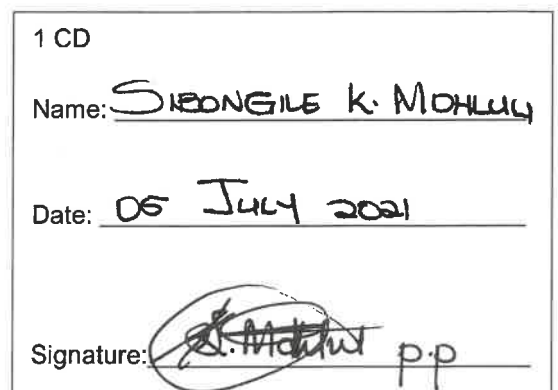 1 CD
Name: SIBONGILE K. MOHLULI
Date: 05 JULY 2021
Signature: S. Mohluli p.p